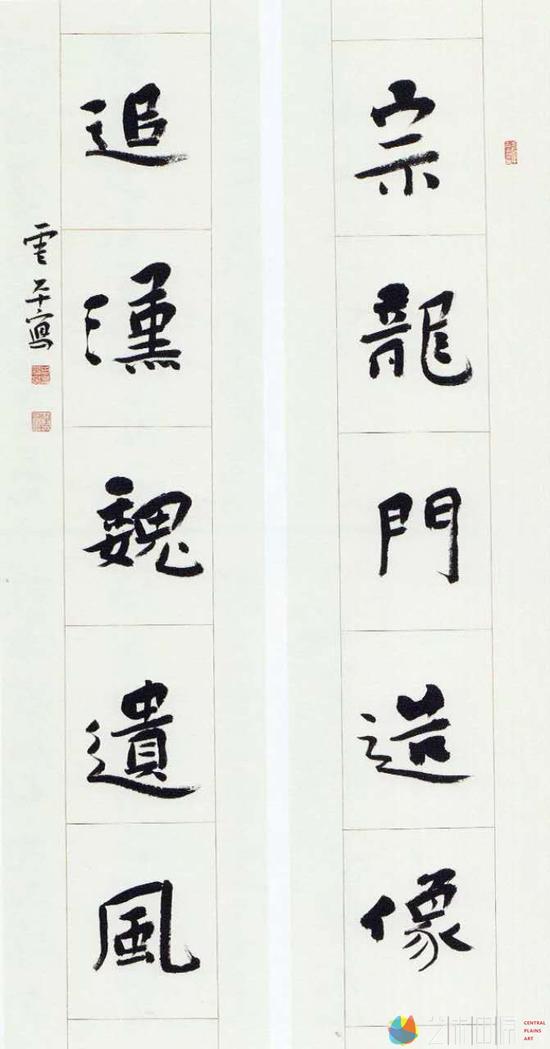 宗龍門造像
追漢魏遺風
雲平寫
CENTRAL
PLAINS
ART